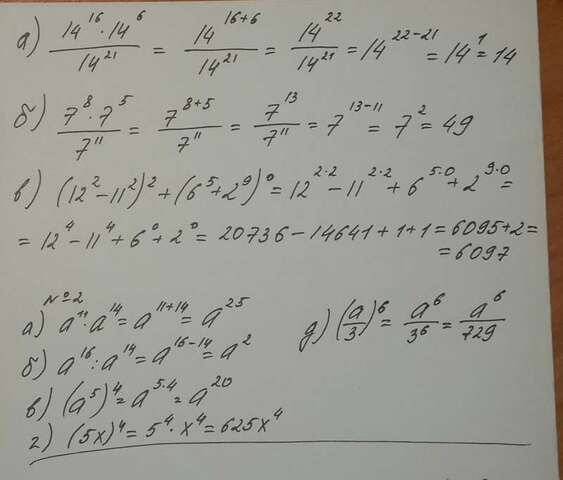 а) (14^16 · 14^6)/14^21 = 14^(16+6)/14^21 = 14^22/14^21 = 14^(22-21) = 14^1 = 14
б) (7^8 · 7^5)/7^11 = 7^(8+5)/7^11 = 7^13/7^11 = 7^(13-11) = 7^2 = 49
в) (12^2 - 11^2)^2 + (6^5 + 2^9)^0 = 12^(2·2) - 11^(2·2) + 6^(5·0) + 2^(9·0) =
= 12^4 - 11^4 + 6^0 + 2^0 = 20736 - 14641 + 1 + 1 = 6095 + 2 =
= 6097
№2
а) a^11 · a^14 = a^(11+14) = a^25
б) a^16 : a^14 = a^(16-14) = a^2
в) (a^5)^4 = a^(5·4) = a^20
г) (5x)^4 = 5^4 · x^4 = 625x^4
д) (a/3)^6 = a^6/3^6 = a^6/729